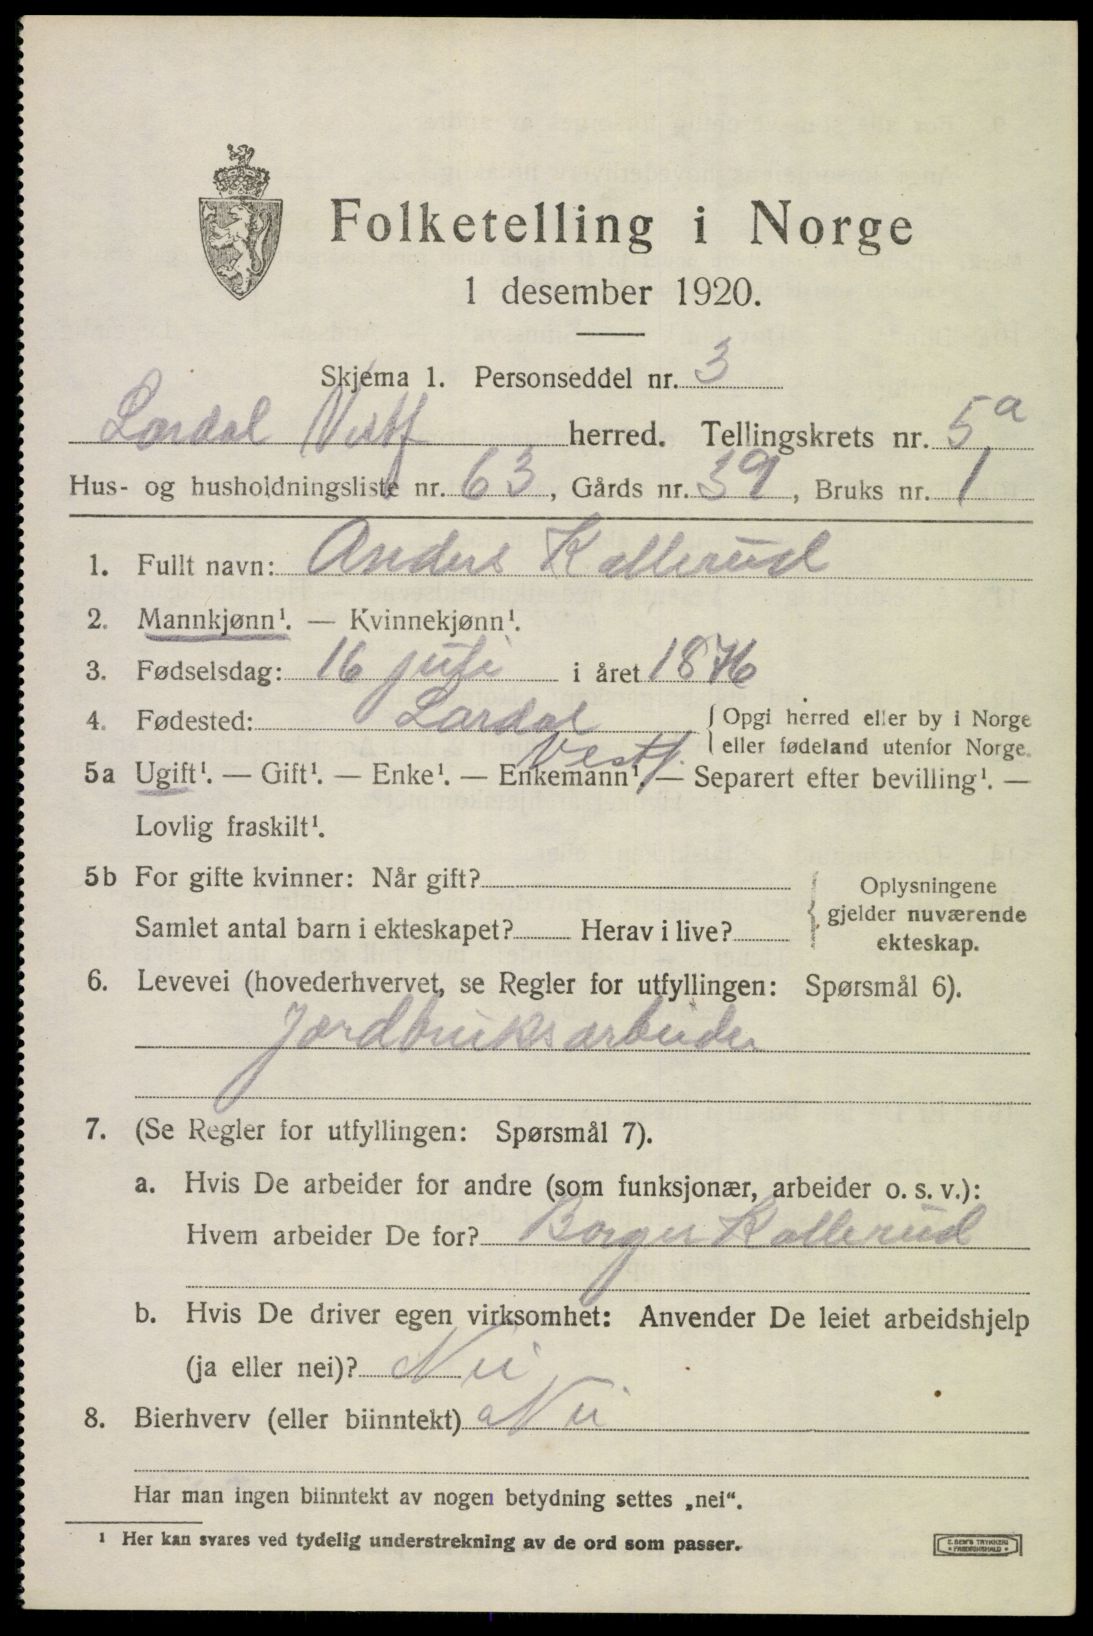 Folketelling i Norge
1 desember 1920.
Skjema 1. Personseddel nr. 3
Lardal Vestf herred. Tellingskrets nr. 5a
Hus- og husholdningsliste nr. 63, Gårds nr. 39, Bruks nr. 1
1. Fullt navn: Anders Kallerud
2. Mannkjønn¹. — Kvinnekjønn¹.
3. Fødselsdag: 16 juli i året 1876
4. Fødested: Lardal { Opgi herred eller by i Norge
Vestf. eller fødeland utenfor Norge.
5a Ugift¹. — Gift¹. — Enke¹. — Enkemann¹. — Separert efter bevilling¹. —
Lovlig fraskilt¹.
5b For gifte kvinner: Når gift? { Oplysningene
gjelder nuværende
Samlet antal barn i ekteskapet? Herav i live? ekteskap.
6. Levevei (hovederhvervet, se Regler for utfyllingen: Spørsmål 6).
Jordbruksarbeider
7. (Se Regler for utfyllingen: Spørsmål 7).
a. Hvis De arbeider for andre (som funksjonær, arbeider o. s. v.):
Hvem arbeider De for? Borger Kallerud
b. Hvis De driver egen virksomhet: Anvender De leiet arbeidshjelp
(ja eller nei)? Nei
8. Bierhverv (eller biinntekt) Nei
Har man ingen biinntekt av nogen betydning settes „nei“.
¹ Her kan svares ved tydelig understrekning av de ord som passer.
E. SEM'S TRYKKERI
FREDRIKSHALD